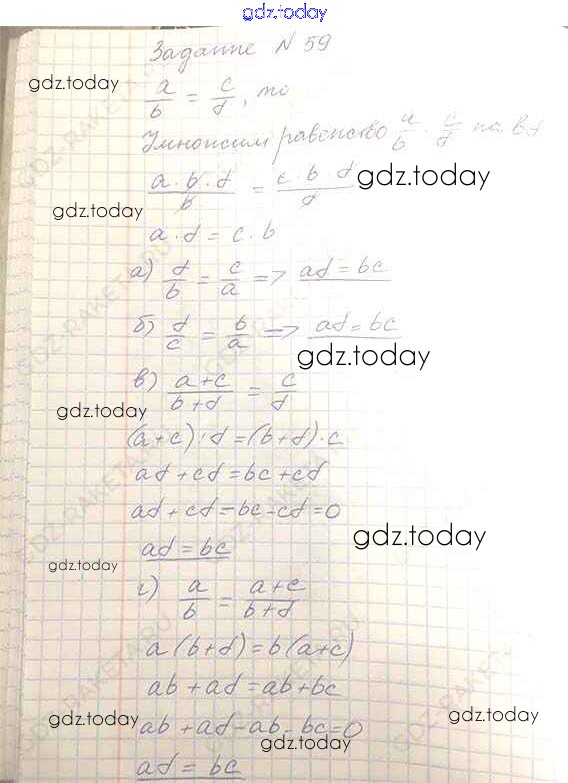 gdz.today
Задание N 59
gdz.today
a/b = c/d, то
Умножим равенство a/b · c/d на bd
(a · b · d)/b = (c · b · d)/d
gdz.today
gdz.today
a · d = c · b
а) d/b = c/a => ad = bc
б) d/c = b/a => ad = bc
gdz.today
в) (a+c)/(b+d) = c/d
gdz.today
(a+c)·d = (b+d)·c
ad + cd = bc + cd
ad + cd - bc - cd = 0
gdz.today
ad = bc
gdz.today
г) a/b = (a+c)/(b+d)
a(b+d) = b(a+c)
ab + ad = ab + bc
gdz.today
gdz.today
ab + ad - ab - bc = 0
gdz.today
ad = bc
GDZ-RAKETA.RU